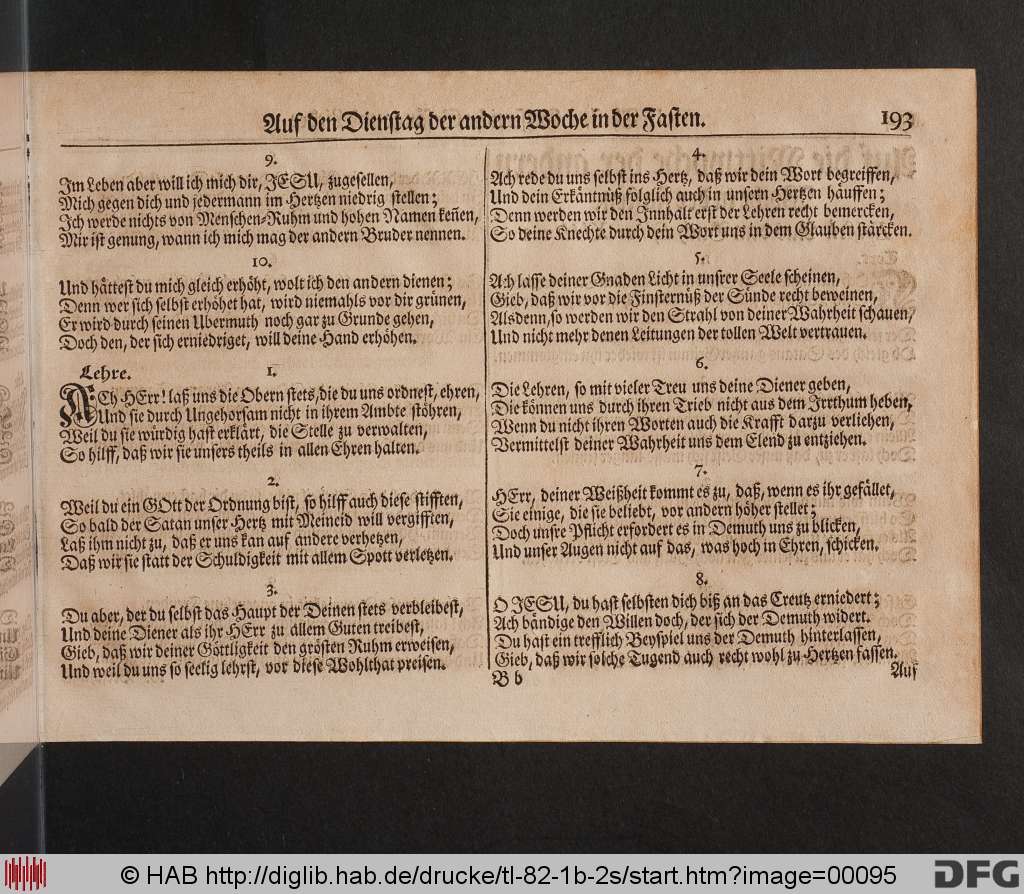 Auf den Dienstag der andern Woche in der Fasten. 193
9.
Im Leben aber will ich mich dir, JESU, zugesellen,
Mich gegen dich und jedermann im Hertzen niedrig stellen;
Ich werde nichts von Menschen-Ruhm und hohen Namen keñen,
Mir ist genung, wann ich mich mag der andern Bruder nennen.
10.
Und hättest du mich gleich erhöht, wolt ich den andern dienen;
Denn wer sich selbst erhöhet hat, wird niemahls vor dir grünen,
Er wird durch seinen Ubermuth noch gar zu Grunde gehen,
Doch den, der sich erniedriget, will deine Hand erhöhen.
Lehre. 1.
ACh HErr! laß uns die Obern stets, die du uns ordnest, ehren,
Und sie durch Ungehorsam nicht in ihrem Ambte stöhren,
Weil du sie würdig hast erklärt, die Stelle zu verwalten,
So hilff, daß wir sie unsers theils in allen Ehren halten.
2.
Weil du ein GOtt der Ordnung bist, so hilff auch diese stifften,
So bald der Satan unser Hertz mit Meineid will vergifften,
Laß ihm nicht zu, daß er uns kan auf andere verhetzen,
Daß wir sie statt der Schuldigkeit mit allem Spott verletzen.
3.
Du aber, der du selbst das Haupt der Deinen stets verbleibest,
Und deine Diener als ihr HErr zu allem Guten treibest,
Gieb, daß wir deiner Göttligkeit den grösten Ruhm erweisen,
Und weil du uns so seelig lehrst, vor diese Wohlthat preisen.
4.
Ach rede du uns selbst ins Hertz, daß wir dein Wort begreiffen,
Und dein Erkäntnüß folglich auch in unsern Hertzen häuffen;
Denn werden wir den Innhalt erst der Lehren recht bemercken,
So deine Knechte durch dein Wort uns in dem Glauben stärcken.
5.
Ach lasse deiner Gnaden Licht in unsrer Seele scheinen,
Gieb, daß wir vor die Finsternüß der Sünde recht beweinen,
Alsdenn, so werden wir den Strahl von deiner Wahrheit schauen,
Und nicht mehr denen Leitungen der tollen Welt vertrauen.
6.
Die Lehren, so mit vieler Treu uns deine Diener geben,
Die können uns durch ihren Trieb nicht aus dem Irrthum heben,
Wenn du nicht ihren Worten auch die Krafft darzu verliehen,
Vermittelst deiner Wahrheit uns dem Elend zu entziehen.
7.
HErr, deiner Weißheit kommt es zu, daß, wenn es ihr gefället,
Sie einige, die sie beliebt, vor andern höher stellet;
Doch unsre Pflicht erfordert es in Demuth uns zu blicken,
Und unser Augen nicht auf das, was hoch in Ehren, schicken.
8.
O JESU, du hast selbsten dich biß an das Creutz erniedert;
Ach bändige den Willen doch, der sich der Demuth widert.
Du hast ein trefflich Beyspiel uns der Demuth hinterlassen,
Gieb, daß wir solche Tugend auch recht wohl zu Hertzen fassen.
B b Auf
© HAB http://diglib.hab.de/drucke/tl-82-1b-2s/start.htm?image=00095
DFG